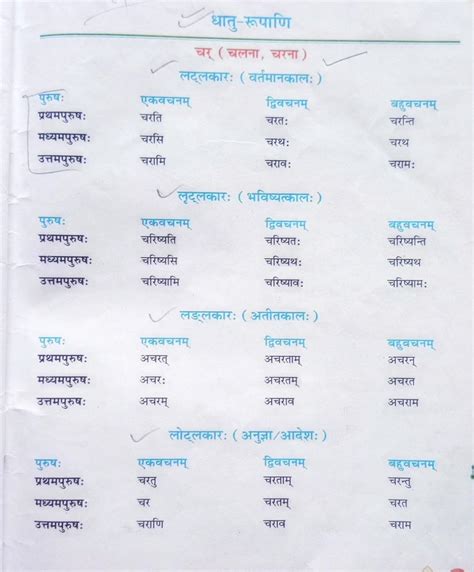 धातु-रूपाणि
चर् ( चलना, चरना )
लट्लकारः ( वर्तमानकालः )
पुरुषः एकवचनम् द्विवचनम् बहुवचनम्
प्रथमपुरुषः चरति चरतः चरन्ति
मध्यमपुरुषः चरसि चरथः चरथ
उत्तमपुरुषः चरामि चरावः चरामः
लृट्लकारः ( भविष्यत्कालः )
पुरुषः एकवचनम् द्विवचनम् बहुवचनम्
प्रथमपुरुषः चरिष्यति चरिष्यतः चरिष्यन्ति
मध्यमपुरुषः चरिष्यसि चरिष्यथः चरिष्यथ
उत्तमपुरुषः चरिष्यामि चरिष्यावः चरिष्यामः
लङ्लकारः ( अतीतकालः )
पुरुषः एकवचनम् द्विवचनम् बहुवचनम्
प्रथमपुरुषः अचरत् अचरताम् अचरन्
मध्यमपुरुषः अचरः अचरतम् अचरत
उत्तमपुरुषः अचरम् अचराव अचराम
लोट्लकारः ( अनुज्ञा/आदेशः )
पुरुषः एकवचनम् द्विवचनम् बहुवचनम्
प्रथमपुरुषः चरतु चरताम् चरन्तु
मध्यमपुरुषः चर चरतम् चरत
उत्तमपुरुषः चराणि चराव चराम